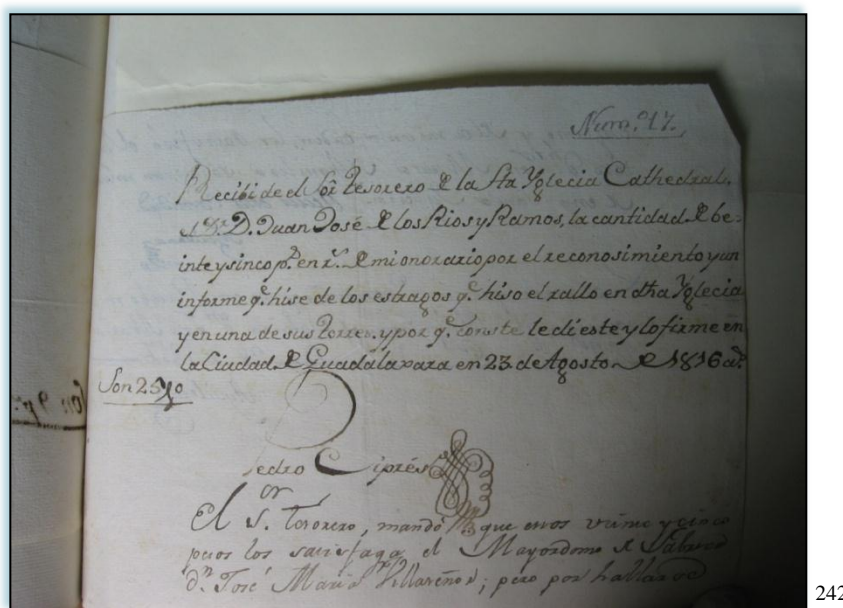 Num.º 17.
Recibi de el Sór Tesorero de la Sta Yglecia Cathedral,
D.r D. Juan José de los Rios y Ramos, la cantidad de be=
inte y sinco p.s en r.s de mi onorario por el reconosimiento y un
informe q.e hise de los estragos q.e hiso el rallo en dha Yglecia
y en una de sus torres. y por q.e conste le di este y lo firme en
la Ciudad de Guadalaxara en 23 de Agosto de 1816 a.s
Son 25 p.s
Pedro Ciprés
El S.or Tesorero, mandó que estos veinte y cinco
pesos los satisfaga el Mayordomo de Fabrica
d.n José Maria Villaseñor; pero por hallarse
242